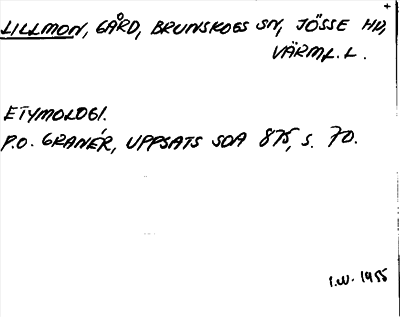 LILLMON, GÅRD, BRUNSKOGS SN, JÖSSE HD,
VÄRML. L.
ETYMOLOGI.
P.O. GRANÉR, UPPSATS SOA 875, S. 70.
I.W. 1955